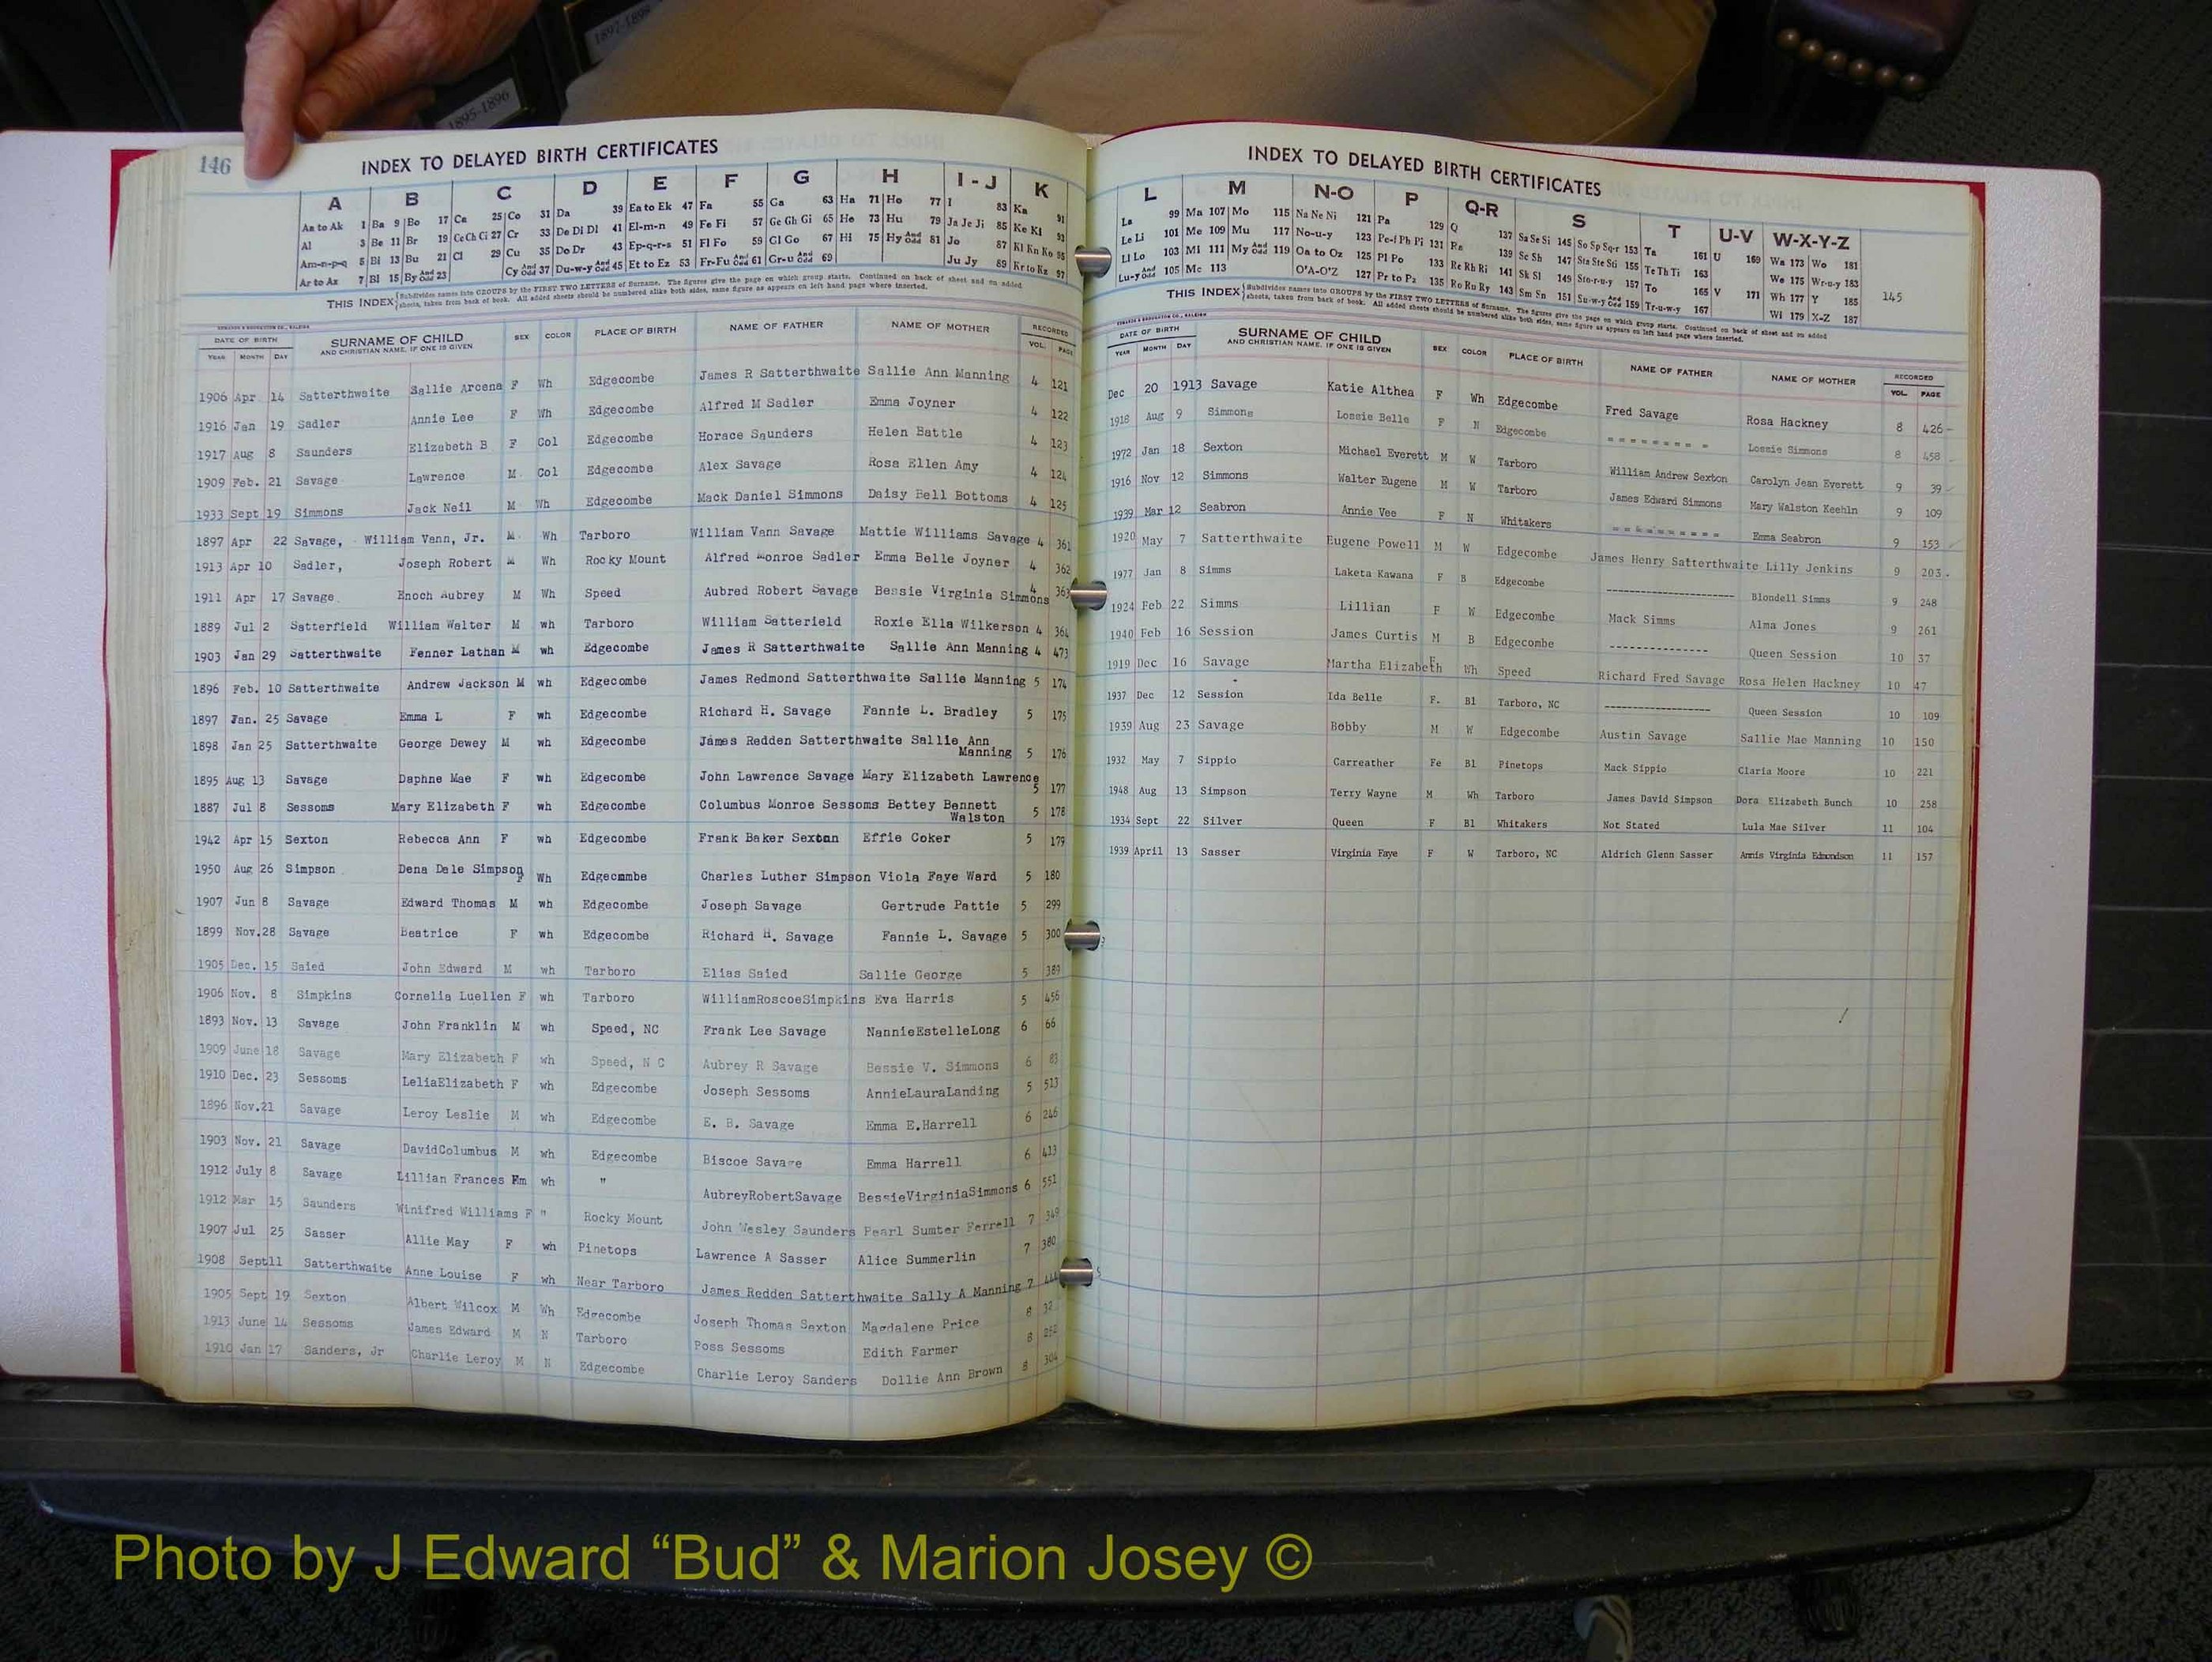 1897-1898
1895-1896
146
INDEX TO DELAYED BIRTH CERTIFICATES
A B C D E F G H I - J K
Aa to Ak 1 Ba 9 Bo 17 Ca 25 Co 31 Da 39 Ea to Ek 47 Fa 55 Ga 63 Ha 71 Ho 77 I 83 Ka 91
Al 3 Be 11 Br 19 Ce Ch Ci 27 Cr 33 De Di Dl 41 El-m-n 49 Fe Fi 57 Ge Gh Gi 65 He 73 Hu 79 Ja Je Ji 85 Ke Kl 93
Am-n-p-q 5 Bi 13 Bu 21 Cl 29 Cu 35 Do Dr 43 Ep-q-r-s 51 Fl Fo 59 Gl Go 67 Hi 75 Hy And Odd 81 Jo 87 Kl Kn Ko 95
Ar to Az 7 Bl 15 By And Odd 23 Cy And Odd 37 Du-w-y And Odd 45 Et to Ez 53 Fr-Fu And Odd 61 Gr-u And Odd 69 Ju Jy 89 Kr to Kz 97
THIS INDEX Subdivides names into GROUPS by the FIRST TWO LETTERS of Surname. The figures give the page on which group starts. Continued on back of sheet and on added
sheets, taken from back of book. All added sheets should be numbered alike both sides, same figure as appears on left hand page where inserted.
DATE OF BIRTH SURNAME OF CHILD SEX COLOR PLACE OF BIRTH NAME OF FATHER NAME OF MOTHER RECORDED
YEAR MONTH DAY AND CHRISTIAN NAME, IF ONE IS GIVEN VOL. PAGE
1906 Apr 14 Satterthwaite Sallie Arcena F Wh Edgecombe James R Satterthwaite Sallie Ann Manning 4 121
1916 Jan 19 Sadler Annie Lee F Wh Edgecombe Alfred M Sadler Emma Joyner 4 122
1917 Aug 8 Saunders Elizabeth B F Col Edgecombe Horace Saunders Helen Battle 4 123
1909 Feb. 21 Savage Lawrence M Col Edgecombe Alex Savage Rosa Ellen Amy 4 124
1933 Sept 19 Simmons Jack Neil M Wh Edgecombe Mack Daniel Simmons Daisy Bell Bottoms 4 125
1897 Apr 22 Savage, William Vann, Jr. M. Wh Tarboro William Vann Savage Mattie Williams Savage 4 361
1913 Apr 10 Sadler, Joseph Robert M Wh Rocky Mount Alfred Monroe Sadler Emma Belle Joyner 4 362
1911 Apr 17 Savage Enoch Aubrey M Wh Speed Aubred Robert Savage Bessie Virginia Simmons 4 363
1889 Jul 2 Satterfield William Walter M wh Tarboro William Satterield Roxie Ella Wilkerson 4 364
1903 Jan 29 Satterthwaite Fenner Lathan M wh Edgecombe James R Satterthwaite Sallie Ann Manning 4 473
1896 Feb. 10 Satterthwaite Andrew Jackson M wh Edgecombe James Redmond Satterthwaite Sallie Manning 5 174
1897 Jan. 25 Savage Emma L F wh Edgecombe Richard H. Savage Fannie L. Bradley 5 175
1898 Jan 25 Satterthwaite George Dewey M wh Edgecombe James Redden Satterthwaite Sallie Ann
Manning 5 176
1895 Aug 13 Savage Daphne Mae F wh Edgecombe John Lawrence Savage Mary Elizabeth Lawrence
5 177
1887 Jul 8 Sessoms Mary Elizabeth F wh Edgecombe Columbus Monroe Sessoms Bettey Bennett
Walston 5 178
1942 Apr 15 Sexton Rebecca Ann F wh Edgecombe Frank Baker Sexton Effie Coker 5 179
1950 Aug 26 Simpson Dena Dale Simpson F Wh Edgecombe Charles Luther Simpson Viola Faye Ward 5 180
1907 Jun 8 Savage Edward Thomas M wh Edgecombe Joseph Savage Gertrude Pattie 5 299
1899 Nov.28 Savage Beatrice F wh Edgecombe Richard H. Savage Fannie L. Savage 5 300
1905 Dec. 15 Saied John Edward M wh Tarboro Elias Saied Sallie George 5 389
1906 Nov. 8 Simpkins Cornelia Luellen F wh Tarboro WilliamRoscoeSimpkins Eva Harris 5 456
1893 Nov. 13 Savage John Franklin M wh Speed, NC Frank Lee Savage NannieEstelleLong 6 66
1909 June 18 Savage Mary Elizabeth F wh Speed, N C Aubrey R Savage Bessie V. Simmons 6 83
1910 Dec. 23 Sessoms LeliaElizabeth F wh Edgecombe Joseph Sessoms AnnieLauraLanding 5 513
1896 Nov.21 Savage Leroy Leslie M wh Edgecombe E. B. Savage Emma E.Harrell 6 246
1903 Nov. 21 Savage DavidColumbus M wh Edgecombe Biscoe Savage Emma Harrell 6 413
1912 July 8 Savage Lillian Frances Fm wh " AubreyRobertSavage BessieVirginiaSimmons 6 551
1912 Mar 15 Saunders Winifred Williams F " Rocky Mount John Wesley Saunders Pearl Sumter Ferrell 7 349
1907 Jul 25 Sasser Allie May F wh Pinetops Lawrence A Sasser Alice Summerlin 7 380
1908 Sept11 Satterthwaite Anne Louise F wh Near Tarboro James Redden Satterthwaite Sally A Manning 7 444
1905 Sept 19 Sexton Albert Wilcox M Wh Edgecombe Joseph Thomas Sexton Magdalene Price 8 32
1913 June 14 Sessoms James Edward M N Tarboro Poss Sessoms Edith Farmer 8 252
1910 Jan 17 Sanders, Jr Charlie Leroy M N Edgecombe Charlie Leroy Sanders Dollie Ann Brown 8 304
INDEX TO DELAYED BIRTH CERTIFICATES
L M N-O P Q-R S T U-V W-X-Y-Z
La 99 Ma 107 Mo 115 Na Ne Ni 121 Pa 129 Q 137 Sa Se Si 145 So Sp Sq-r 153 Ta 161 U 169 Wa 173 Wo 181
Le Li 101 Me 109 Mu 117 No-u-y 123 Pe-f Ph Pi 131 Ra 139 Sc Sh 147 Sta Ste Sti 155 Te Th Ti 163 We 175 Wr-u-y 183
Ll Lo 103 Mi 111 My And Odd 119 Oa to Oz 125 Pl Po 133 Re Rh Ri 141 Sk Sl 149 Sto-r-u-y 157 To 165 V 171 Wh 177 Y 185
Lu-y And Odd 105 Mc 113 O'A-O'Z 127 Pr to Pz 135 Ro Ru Ry 143 Sm Sn 151 Su-w-y And Odd 159 Tr-u-w-y 167 Wi 179 X-Z 187
145
THIS INDEX Subdivides names into GROUPS by the FIRST TWO LETTERS of Surname. The figures give the page on which group starts. Continued on back of sheet and on added
sheets, taken from back of book. All added sheets should be numbered alike both sides, same figure as appears on left hand page where inserted.
DATE OF BIRTH SURNAME OF CHILD SEX COLOR PLACE OF BIRTH NAME OF FATHER NAME OF MOTHER RECORDED
YEAR MONTH DAY AND CHRISTIAN NAME, IF ONE IS GIVEN VOL. PAGE
Dec 20 1913 Savage Katie Althea F Wh Edgecombe Fred Savage Rosa Hackney 8 426
1918 Aug 9 Simmons Lossie Belle F N Edgecombe -------- Lossie Simmons 8 458
1972 Jan 18 Sexton Michael Everett M W Tarboro William Andrew Sexton Carolyn Jean Everett 9 39
1916 Nov 12 Simmons Walter Eugene M W Tarboro James Edward Simmons Mary Walston Keehln 9 109
1939 Mar 12 Seabron Annie Vee F N Whitakers --------- Emma Seabron 9 153
1920 May 7 Satterthwaite Eugene Powell M W Edgecombe James Henry Satterthwaite Lilly Jenkins 9 203
1977 Jan 8 Simms Laketa Kawana F B Edgecombe ---------- Blondell Simms 9 248
1924 Feb 22 Simms Lillian F W Edgecombe Mack Simms Alma Jones 9 261
1940 Feb 16 Session James Curtis M B Edgecombe ---------- Queen Session 10 37
1919 Dec 16 Savage Martha Elizabeth F Wh Speed Richard Fred Savage Rosa Helen Hackney 10 47
1937 Dec 12 Session Ida Belle F. Bl Tarboro, NC ---------- Queen Session 10 109
1939 Aug 23 Savage Bobby M W Edgecombe Austin Savage Sallie Mae Manning 10 150
1932 May 7 Sippio Carreather Fe Bl Pinetops Mack Sippio Claria Moore 10 221
1948 Aug 13 Simpson Terry Wayne M Wh Tarboro James David Simpson Dora Elizabeth Bunch 10 258
1934 Sept 22 Silver Queen F Bl Whitakers Not Stated Lula Mae Silver 11 104
1939 April 13 Sasser Virginia Faye F W Tarboro, NC Aldrich Glenn Sasser Annis Virginia Edmondson 11 157
Photo by J Edward “Bud” & Marion Josey ©